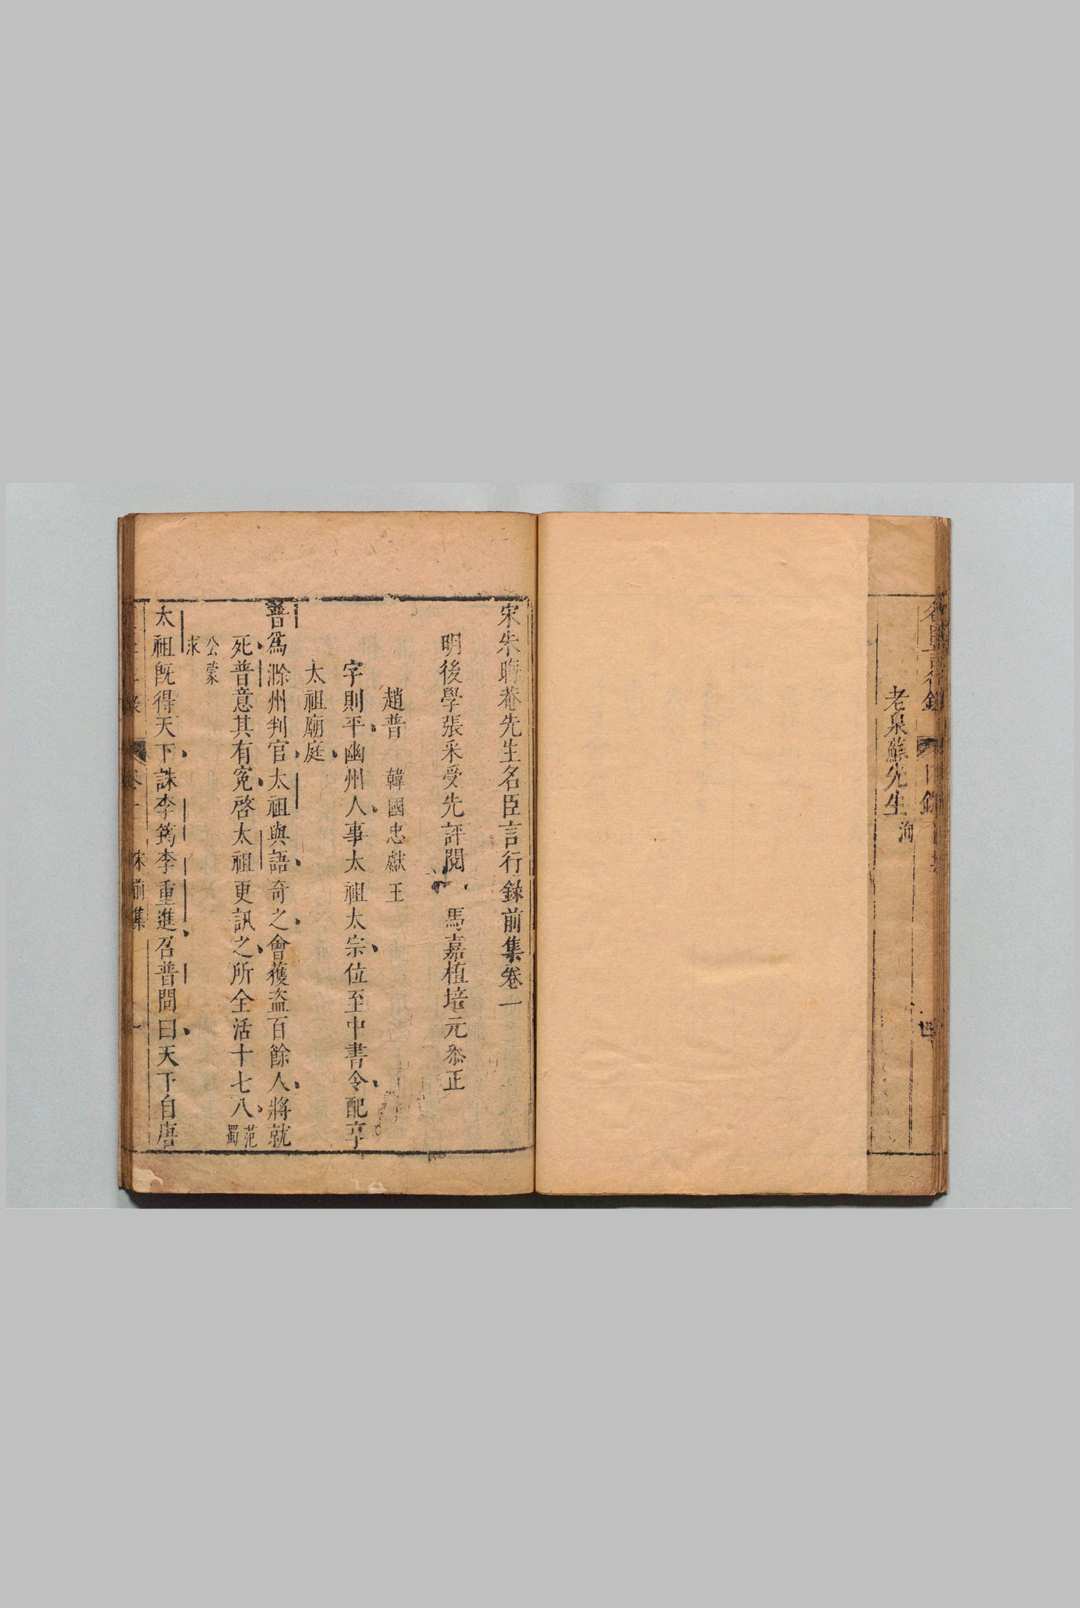 老泉蘇先生洵
宋朱晦菴先生名臣言行錄前集卷一
明後學張采受先評閱 馬嘉植培元叅正
趙普 韓國忠獻王
字則平幽州人事太祖太宗位至中書令配享
太祖廟庭
普爲滁州判官太祖與語奇之會獲盗百餘人將就
死普意其有寃啓太祖更訊之所全活十七八 范蜀
公蒙求
太祖旣得天下誅李筠李重進召普問曰天下自唐
宋前集